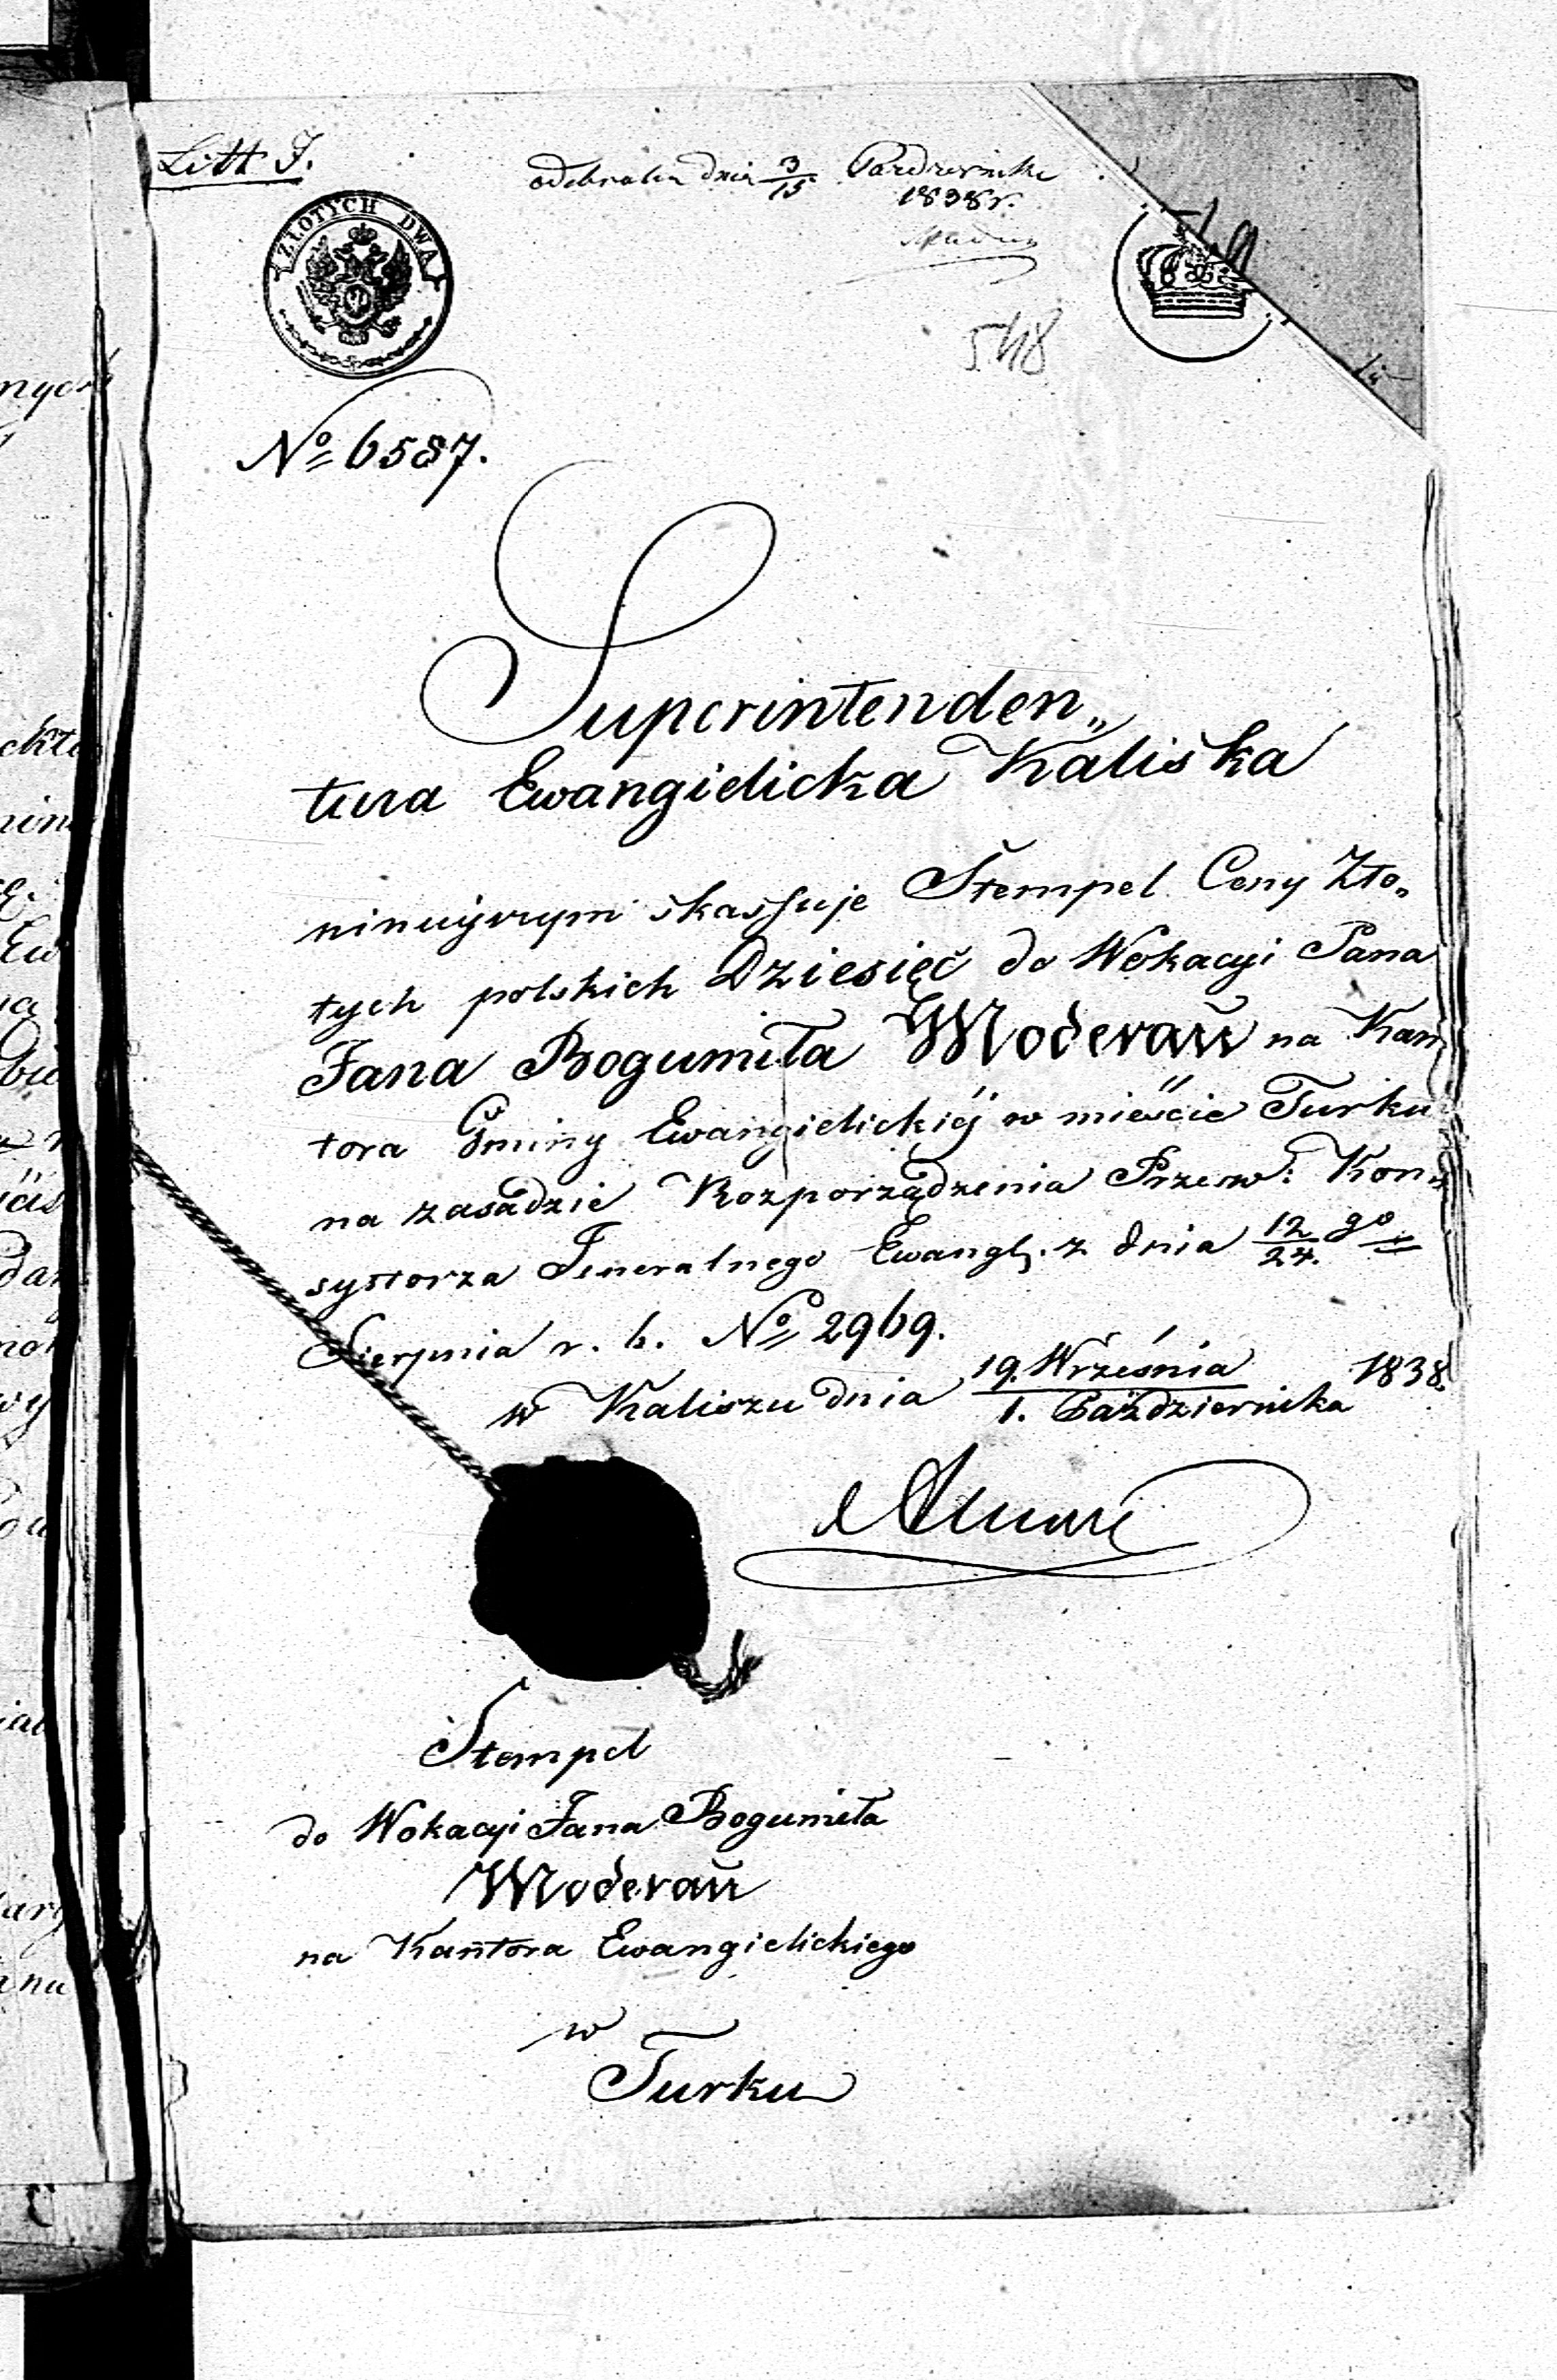 Litt J.
odebrałem dnia 3/15 Pazdziernika
1838 r.
ZŁOTYCH DWA
548
No 6587.
Superinten­den„
tura Ewangielicka Kaliska
ninieyszym skassuje Stempel Ceny Zło„
tych polskich Dziesięć do Wokacyi Pana
Jana Bogumiła Moderau na Kan„
tora Gminy Ewangielickiéj w mieście Turku
na zasadzie Rozporządzenia Przew: Kon„
systorza Generalnego Ewangl. z dnia 12/24. go
Sierpnia r. b. No 2969.
w Kaliszu dnia 19. Września / 1. Października 1838.
Stempel
do Wokacyi Jana Bogumiła
Moderau
na Kantora Ewangielickiego
w
Turku